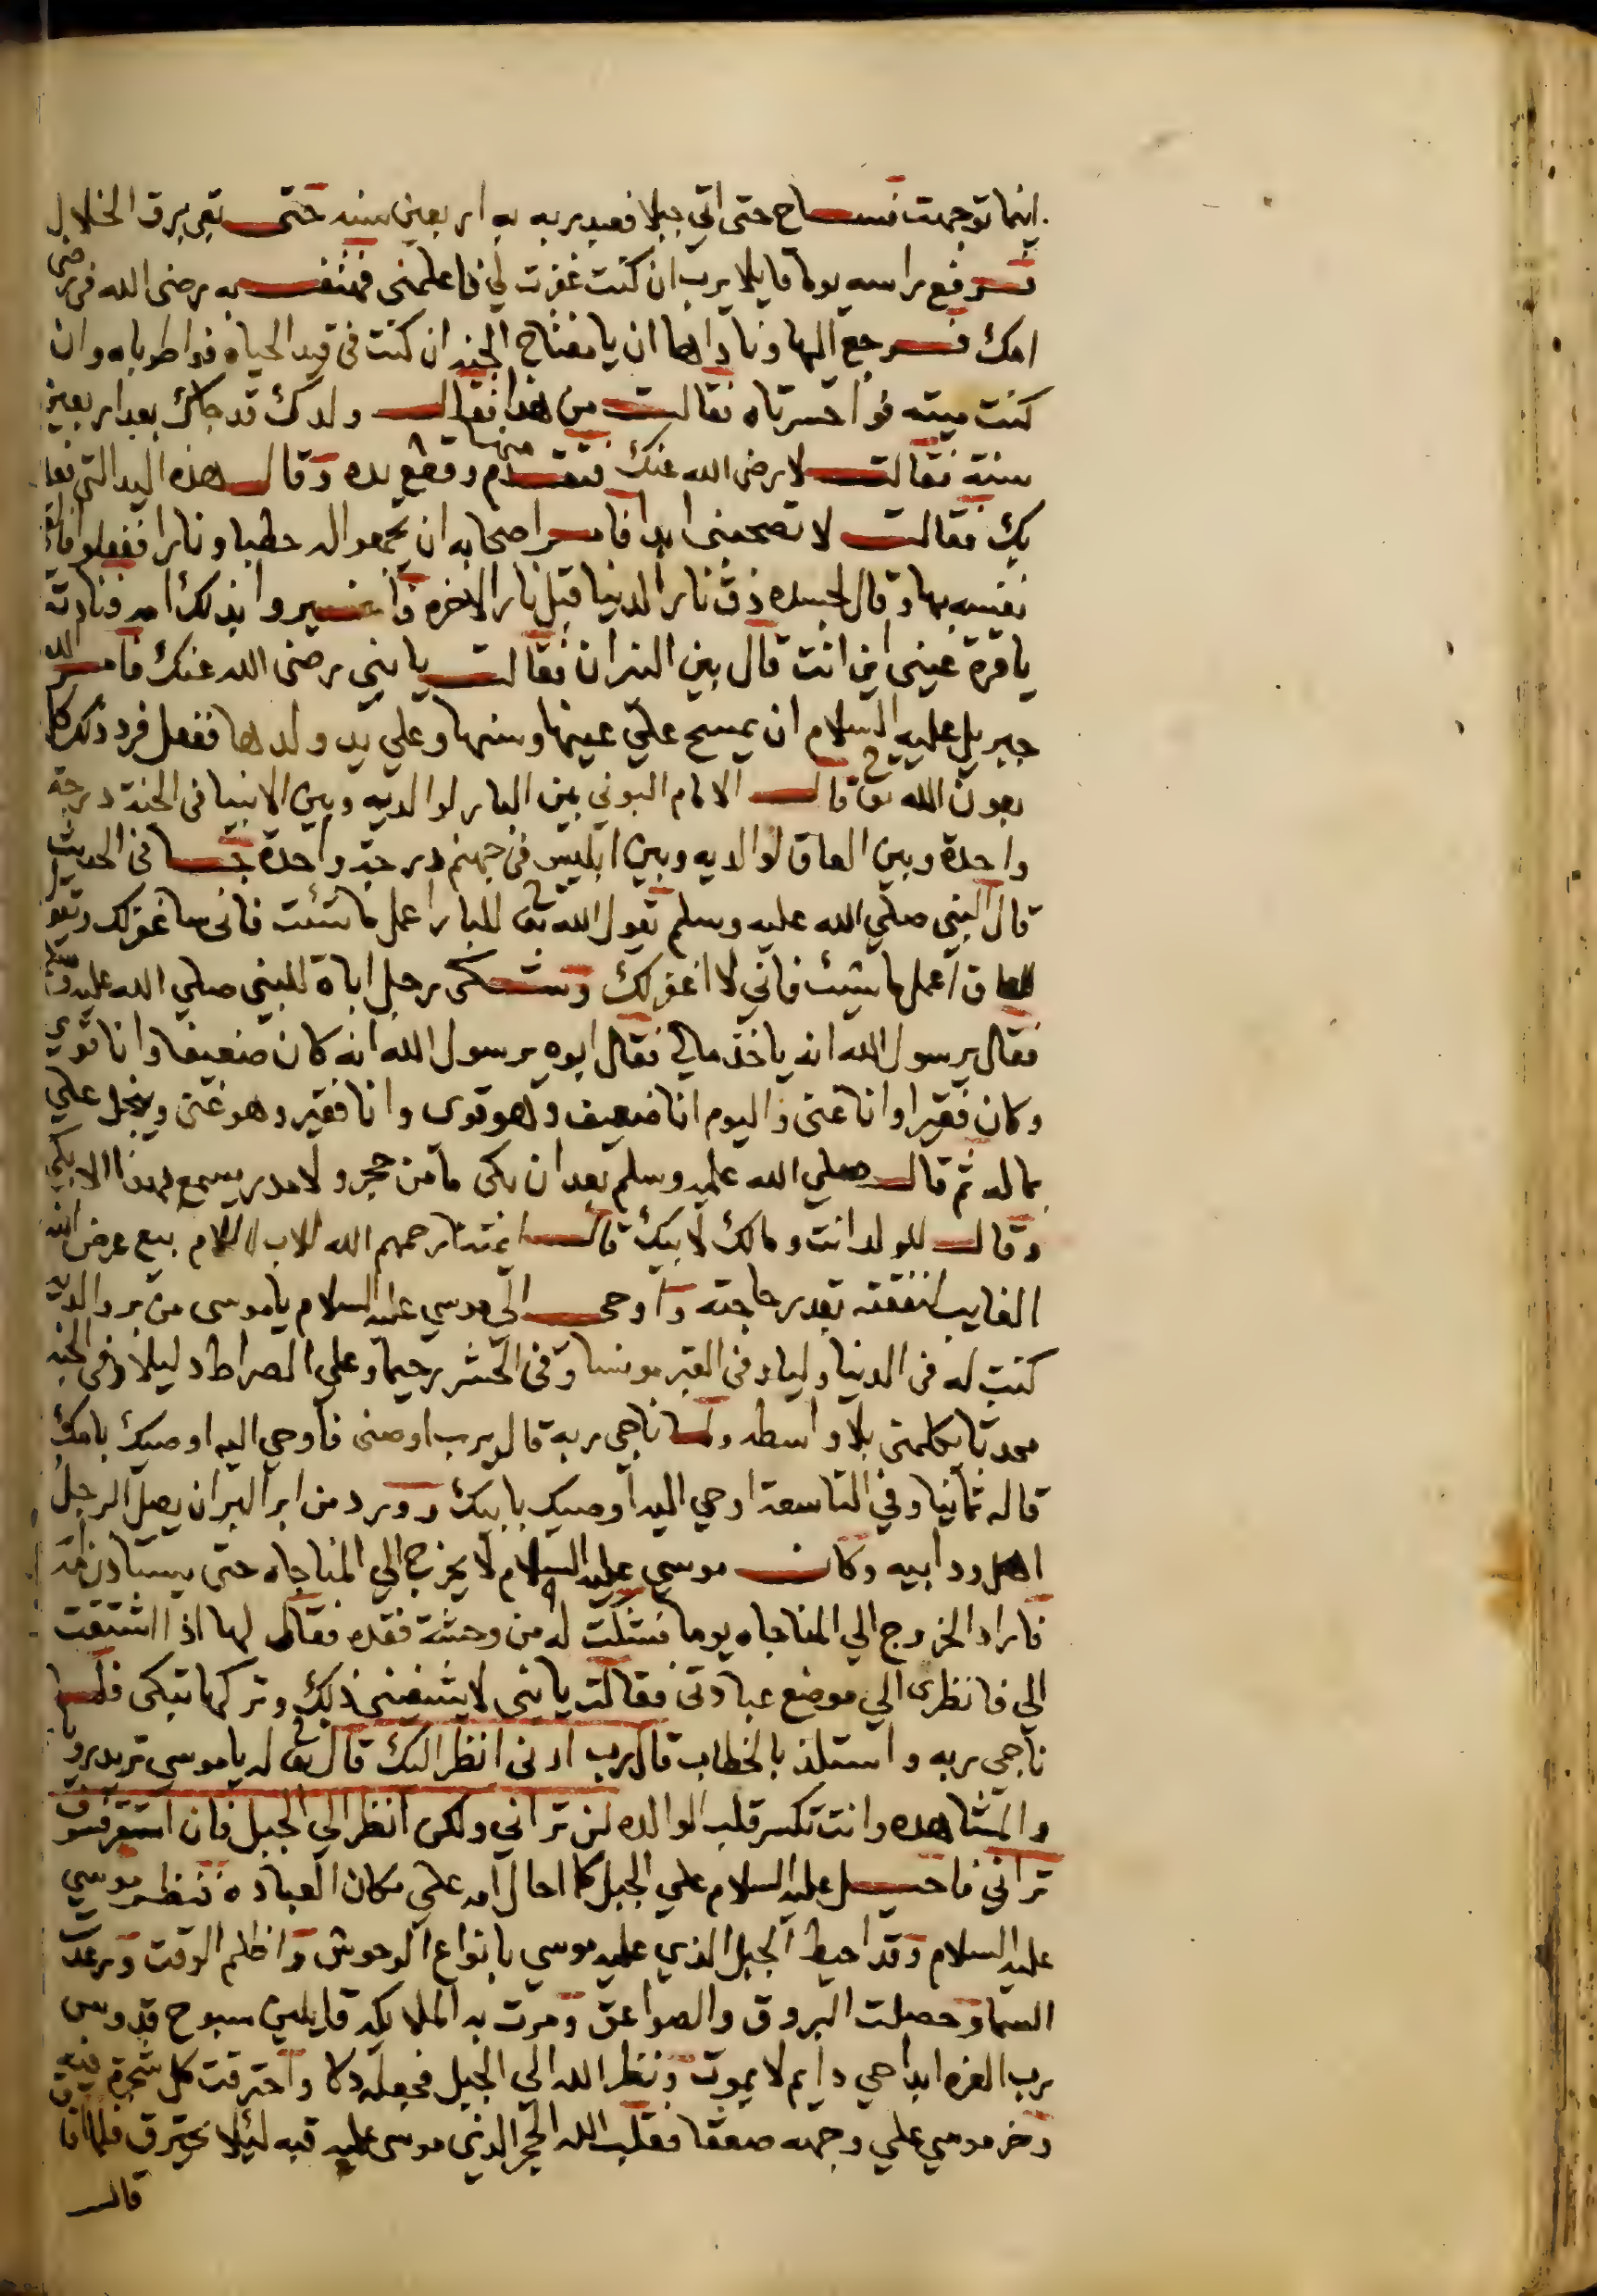 اينما توجهت فساح حتى اتي جبلا فعبد ربه به اربعين سنه حتى بقي برق الخلال
فرفع راسه يوما قايلا يرب ان كنت غفرت لي فاعلمني فهتف به رضى الله في رضى
امك فرجع اليها وناداها ان يا مفتاح الجنه ان كنت في قيد الحياه فواطرباه وان
كنت ميته فواحسرتاه فقالت من هذا فقال ولدك قد جاك بعد اربعين
سنة فقالت لا رضى الله عنك فتقدم منها وقطع يده وقال هذه اليد التي فعلت
بك فقالت لا تصحبني ابدا فامر اصحابه ان يجمعوا له حطبا ونارا ففعلوا فالقى
نفسه بها وقال لجسده ذق نار الدنيا قبل نار الاخره فاخبروا بذلك امه فنادته
يا قرة عيني اين انت قال بين النيران فقالت يا بني رضى الله عنك فامر الله
جبريل عليه السلام ان يمسح علي عينها وسنها وعلي يد ولدها ففعل فرد ذلك كما
بعون الله تع قال الامام البوني بين البار لوالديه وبين الانبيا في الجنة درجة
واحدة وبين العاق لوالديه وبين ابليس في جهنم درجة واحدة جا في الحديث
قال النبي صلي الله عليه وسلم يقول الله تع للبار اعمل ما شئت فاني ساغفر لك ويقول
للعاق اعمل ما شيت فاني لا اغفر لك وشكى رجل اباه للنبي صلي الله عليه وسلم
فقال يرسول الله انه ياخذ مالي فقال ابوه يرسول الله انه كان ضعيفا وانا قوي
وكان فقيرا وانا غني واليوم انا ضعيف وهو قوى وانا فقير وهو غني ويبخل علي
بماله ثم قال صلي الله عليه وسلم بعد ان بكى ما من حجر ولا مدر يسمع بهذا الا بكى
وقال للولد انت ومالك لابيك قال ايمتنا رحمهم الله للاب لا للام بيع عرض ابنه
الغايب لنفقته بقدر حاجته واوحى الي موسي عليه السلام يا موسى من بر والديه
كنت له في الدنيا وليا وفى القبر مونسا وفى الحشر رحيما وعلي الصراط دليلا وفى الجنه
محدثا يكلمني بلا واسطه ولما ناجي ربه قال يرب اوصنى فاوحي اليه اوصيك بامك
قاله ثمانيا وفي التاسعة اوحي اليه اوصيك بابيك وورد من ابر البر ان يصل الرجل
اهل ود ابيه وكان موسي عليه السلام لا يخرج الي المناجاه حتى يستاذن امه
فاراد الخروج الي المناجاه يوما فشكت له من وحشة فقده فقال لها اذا اشتقت
الي فانظري الي موضع عبادتى فقالت يا بني لا يشفيني ذلك وتركها تبكى فلما
ناجي ربه واستلذ بالخطاب قال رب ارني انظر اليك قال تع له يا موسى تريد رويا
والمشاهده وانت تكسر قلب الوالده لن تراني ولكن انظر الي الجبل فان استقر فسوف
تراني فاحيل عليه السلام علي الجبل كما احال امه علي مكان العباده فنظر موسي
عليه السلام وقد احيط الجبل الذي عليه موسي بانواع الوحوش واظلم الوقت ورعدت
السما وحصلت البروق والصواعق ومرت به الملايكه قايلين سبوح قدوس
رب العزه ابدا حي دايم لا يموت ونظر الله الي الجبل فجعله دكا واحترقت كل شجرة فيه
وخر موسي علي وجهه صعقا فقلب الله الحجر الذى موسى عليه قبه لئلا يحترق فلما افاق
قال